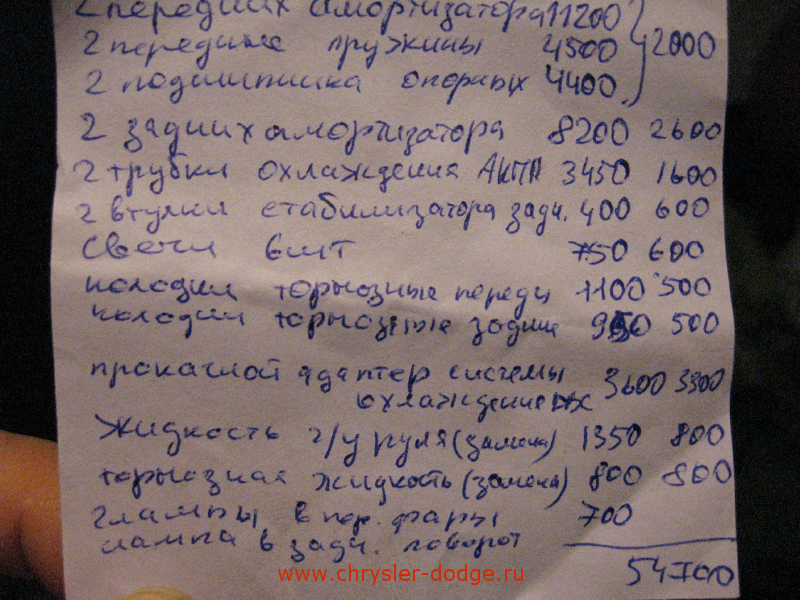 2 передних амортизатора 11200
2 передние пружины 4500 } 2000
2 подшипника опорных 4400
2 задних амортизатора 8200 2600
2 трубки охлаждения АКПП 3450 1600
2 втулки стабилизатора задн. 400 600
Свечи 6шт 750 600
колодки тормозные передн 1100 500
колодки тормозные задние 950 500
прокачной адаптер системы 3600 3300
охлаждения
Жидкость г/у руля (замена) 1350 800
тормозная жидкость (замена) 800 800
2 лампы в пер. фары 700
лампа в задн. поворот
54700
www.chrysler-dodge.ru